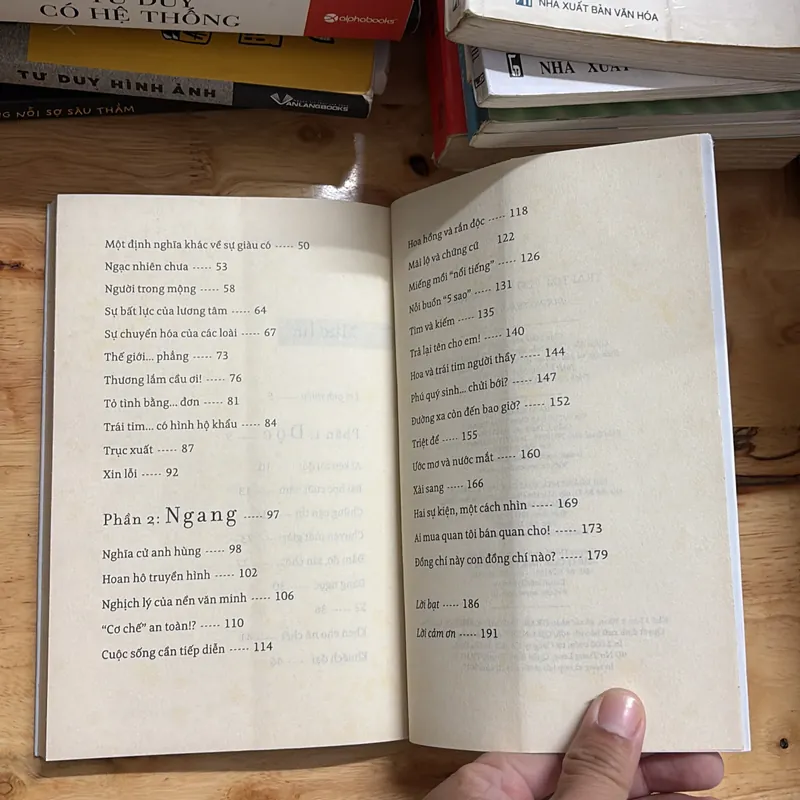 TƯ DUY
CÓ HỆ THỐNG
alphabooks
TƯ DUY HÌNH ẢNH
VANLANGBOOKS
NỖI SỢ SÂU THẲM
NHÀ XUẤT BẢN VĂN HÓA
NHÀ XUẤT
Một định nghĩa khác về sự giàu có ----- 50
Ngạc nhiên chưa ----- 53
Người trong mộng ----- 58
Sự bất lực của lương tâm ----- 64
Sự chuyển hóa của các loài ----- 67
Thế giới... phẳng ----- 73
Thương lắm cầu ơi! ----- 76
Tỏ tình bằng... đơn ----- 81
Trái tim... có hình hộ khẩu ----- 84
Trục xuất ----- 87
Xin lỗi ----- 92
Phần 2: Ngang ----- 97
Nghĩa cử anh hùng ----- 98
Hoan hô truyền hình ----- 102
Nghịch lý của nền văn minh ----- 106
“Cơ chế” an toàn!? ----- 110
Cuộc sống cần tiếp diễn ----- 114
Hoa hồng và rắn độc ----- 118
Mãi lộ và chứng cứ 122
Miếng mồi “nổi tiếng” ----- 126
Nỗi buồn “5 sao” ----- 131
Tìm và kiếm ----- 135
Trả lại tên cho em! ----- 140
Hoa và trái tim người thầy ----- 144
Phú quý sinh... chửi bới? ----- 147
Đường xa còn đến bao giờ? ----- 152
Triệt để ----- 155
Ước mơ và nước mắt ----- 160
Xài sang ----- 166
Hai sự kiện, một cách nhìn ----- 169
Ai mua quan tôi bán quan cho! ----- 173
Đồng chí này con đồng chí nào? ----- 179
Lời bạt ----- 186
Lời cảm ơn ----- 191